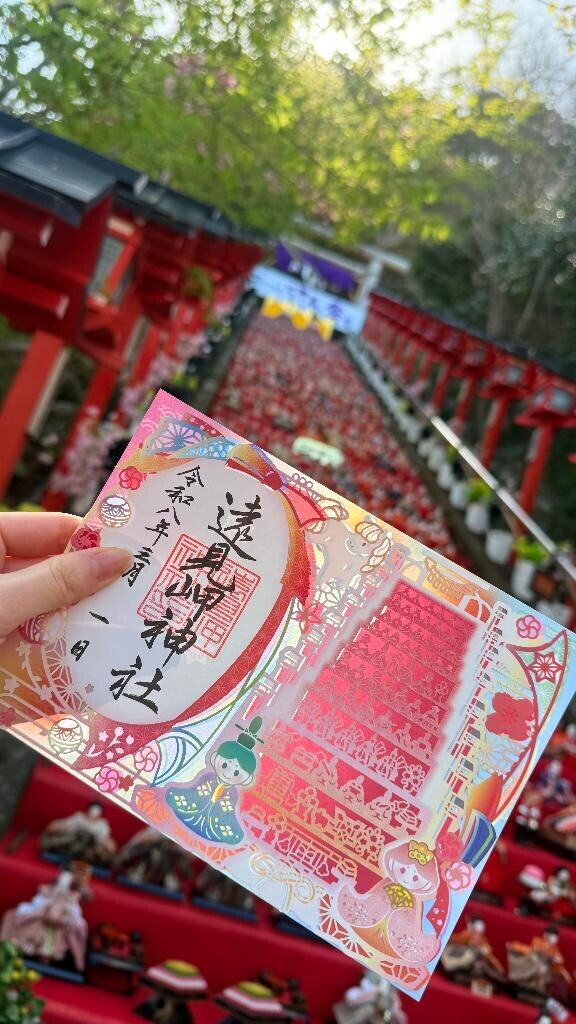 遠見岬神社
令和八年三月一日